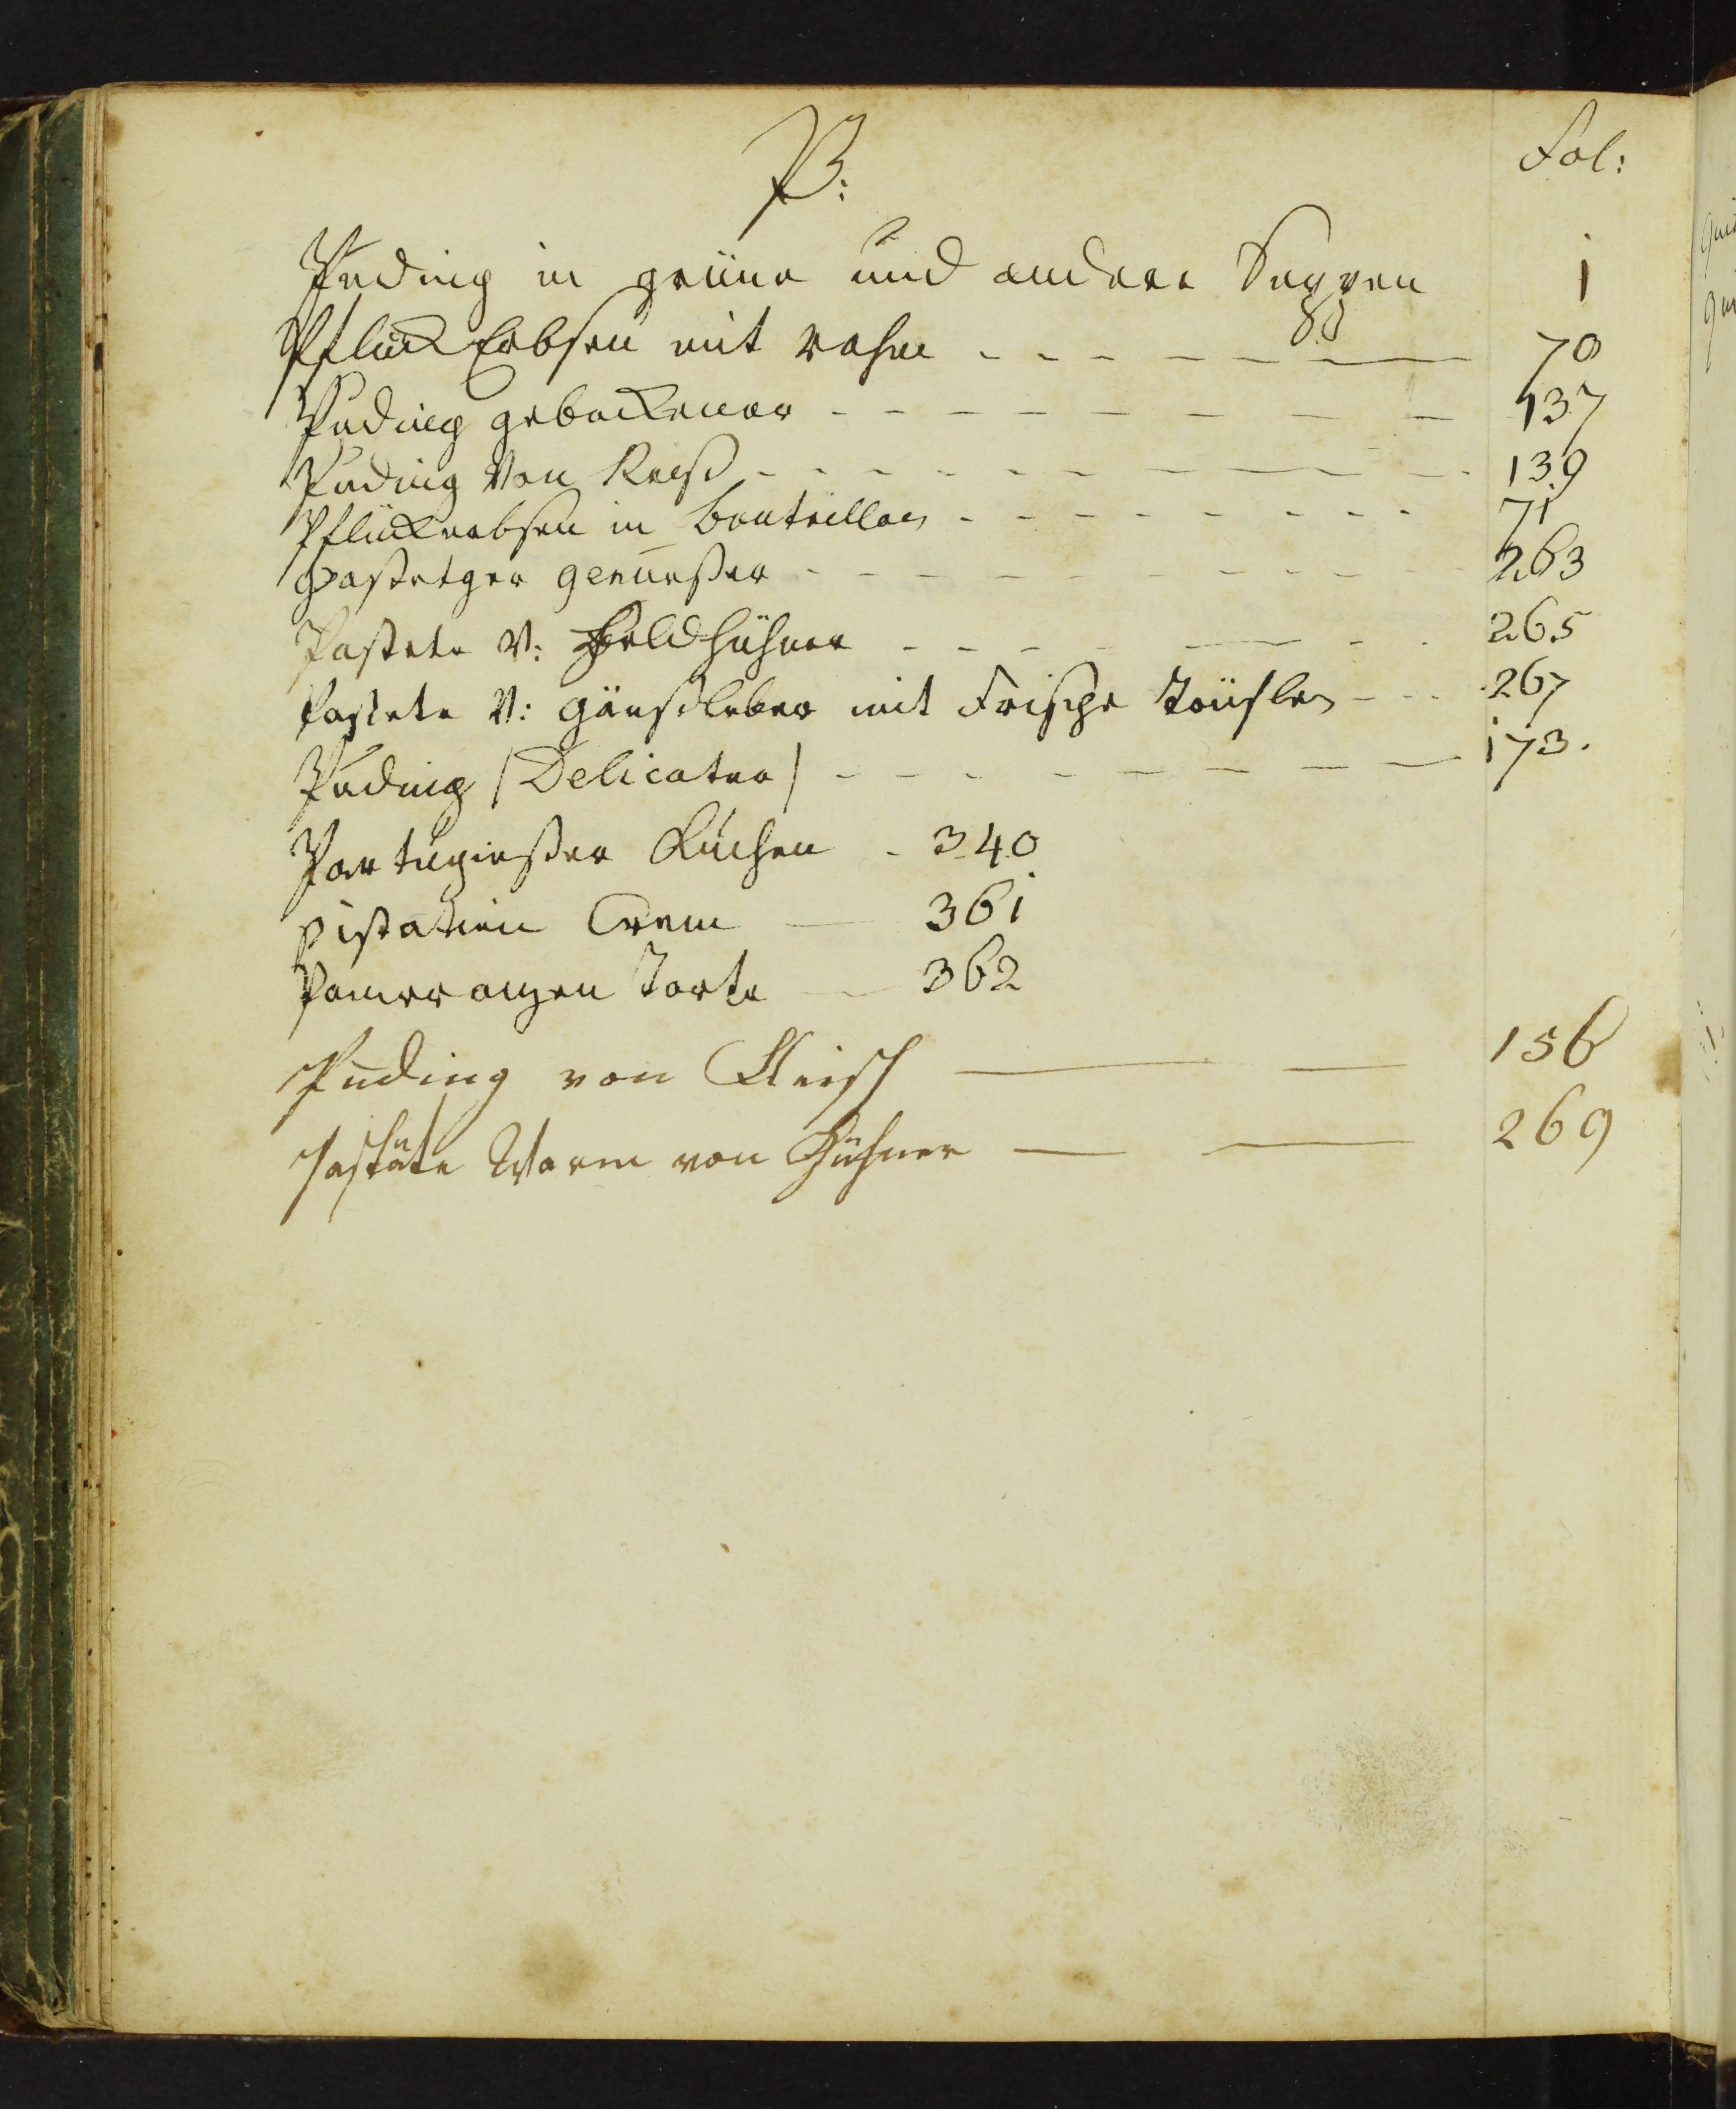 P:
Fol:
Puding in grüne und andere Suppen 1
Pflück Erbsen mit rahm - - - - - - - 70
Puding gebackener - - - - - - - - - 137
Puding Von Reiß - - - - - - - - 139
Pflückerbsen in Bouteillen - - - - - - - - 71
Pastetger genueßer - - - - - - - - - - 263
Pastete V: Feldhühner - - - - - - 265
Pastete V: Gänseleber mit Frische Trüflen - - - 267
Puding /Delicater/ - - - - - - - - 173.
Portugießer Kuchen - 340
Pistatzien Crem — 361
Pomeranzen Torte — 362
Puding von Fleisch — — 156
Pastäte Warm von Hühner — — 269